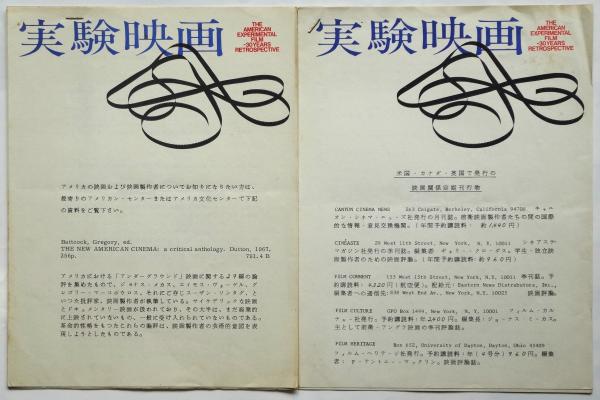 実験映画
THE
AMERICAN
EXPERIMENTAL
FILM
-30YEARS
RETROSPECTIVE
アメリカの映画および映画製作者についてお知りになりたい方は、
最寄りのアメリカン・センターまたはアメリカ文化センターで下記
の資料をご覧下さい。
Battcock, Gregory, ed.
THE NEW AMERICAN CINEMA: a critical anthology. Dutton, 1967,
256p. 791.4 B
アメリカにおける「アンダーグラウンド」映画に関する29編の論
評を集めたもので、ジョナス・メカス、エイモス・ヴォーゲル、グ
レゴリー・マーコポウロス、それにご存じスーザン・ソンタグ、と
いった批評家、映画製作者が執筆している。サイケデリックな映画
とドキュメンタリー映画が扱われており、その大半は、まだ商業的
に上映されていないもの、一般に受け入れられていないものである。
革命的性格をもつたこれらの論評は、映画製作者の芸術的意図を表
現しようとしたものである。
実験映画
THE
AMERICAN
EXPERIMENTAL
FILM
-30YEARS
RETROSPECTIVE
米国・カナダ・英国で発行の
映画関係定期刊行物
CANYON CINEMA NEWS 263 Colgate, Berkeley, California 94708 キャニ
オン・シネマ・ニュース社発行の月刊誌。前衛映画製作者たちの間の国際
的な情報・意見交換機関。(年間予約購読料: 約1,440円)
CINÉASTE 29 West 11th Street, New York, N.Y. 10011 シネアステ・
マガジン社発行の季刊誌。編集者:ギャリー・クローダス。学生・独立映
画製作者のための映画評論。(年間予約購読料: 約960円)
FILM COMMENT 133 West 15th Street, New York, N.Y. 10011 季刊誌。予
約購読料: 4,320円(航空便)。配給元: Eastern News Distributors, Inc.,
編集者への通信先: 838 West End Av., New York, N.Y. 10025 映画評論。
FILM CULTURE GPO Box 1499, New York, N.Y. 10001 フィルム・カル
チュア社発行。予約購読料:年2,400円。編集長:ジョーナス・ミーカス。
主として前衛・アングラ映画の季刊評論誌。
FILM HERITAGE Box 652, University of Dayton, Dayton, Ohio 45409
フィルム・ヘリテージ社発行。予約購読料:年(4号分)960円。編集
者: F・アントニー・マックリン。映画評論誌。